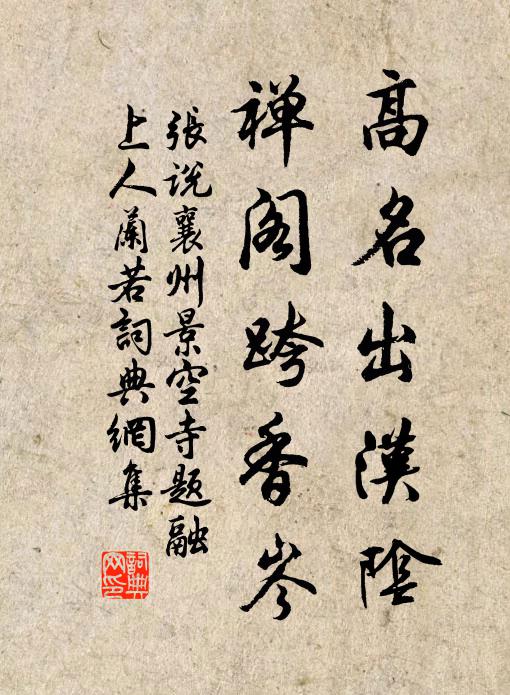 高名出漢陰
禅閣跨香岑
張説襄州景空寺題融
上人蘭若詞典網集
詞典网印